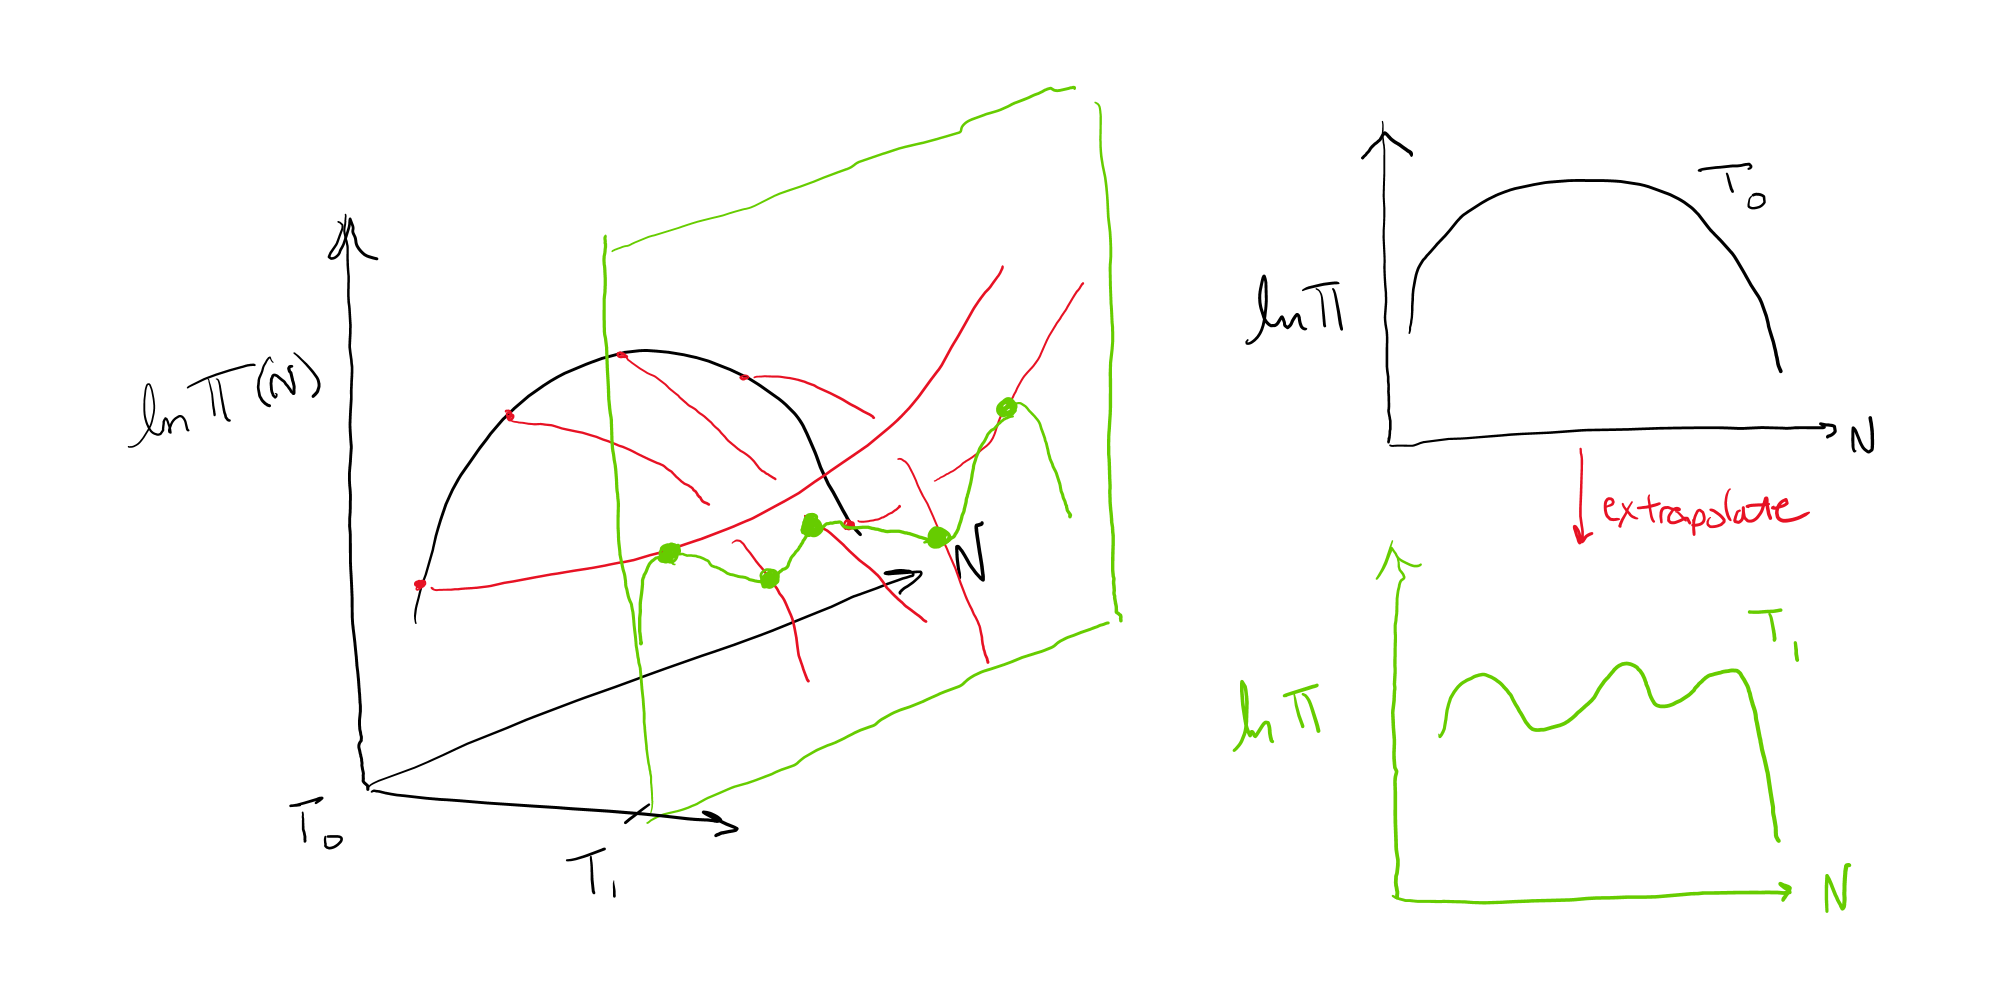 ln Π (N)
N
T₀
T₁
T₀
ln Π
N
extrapolate
T₁
ln Π
N